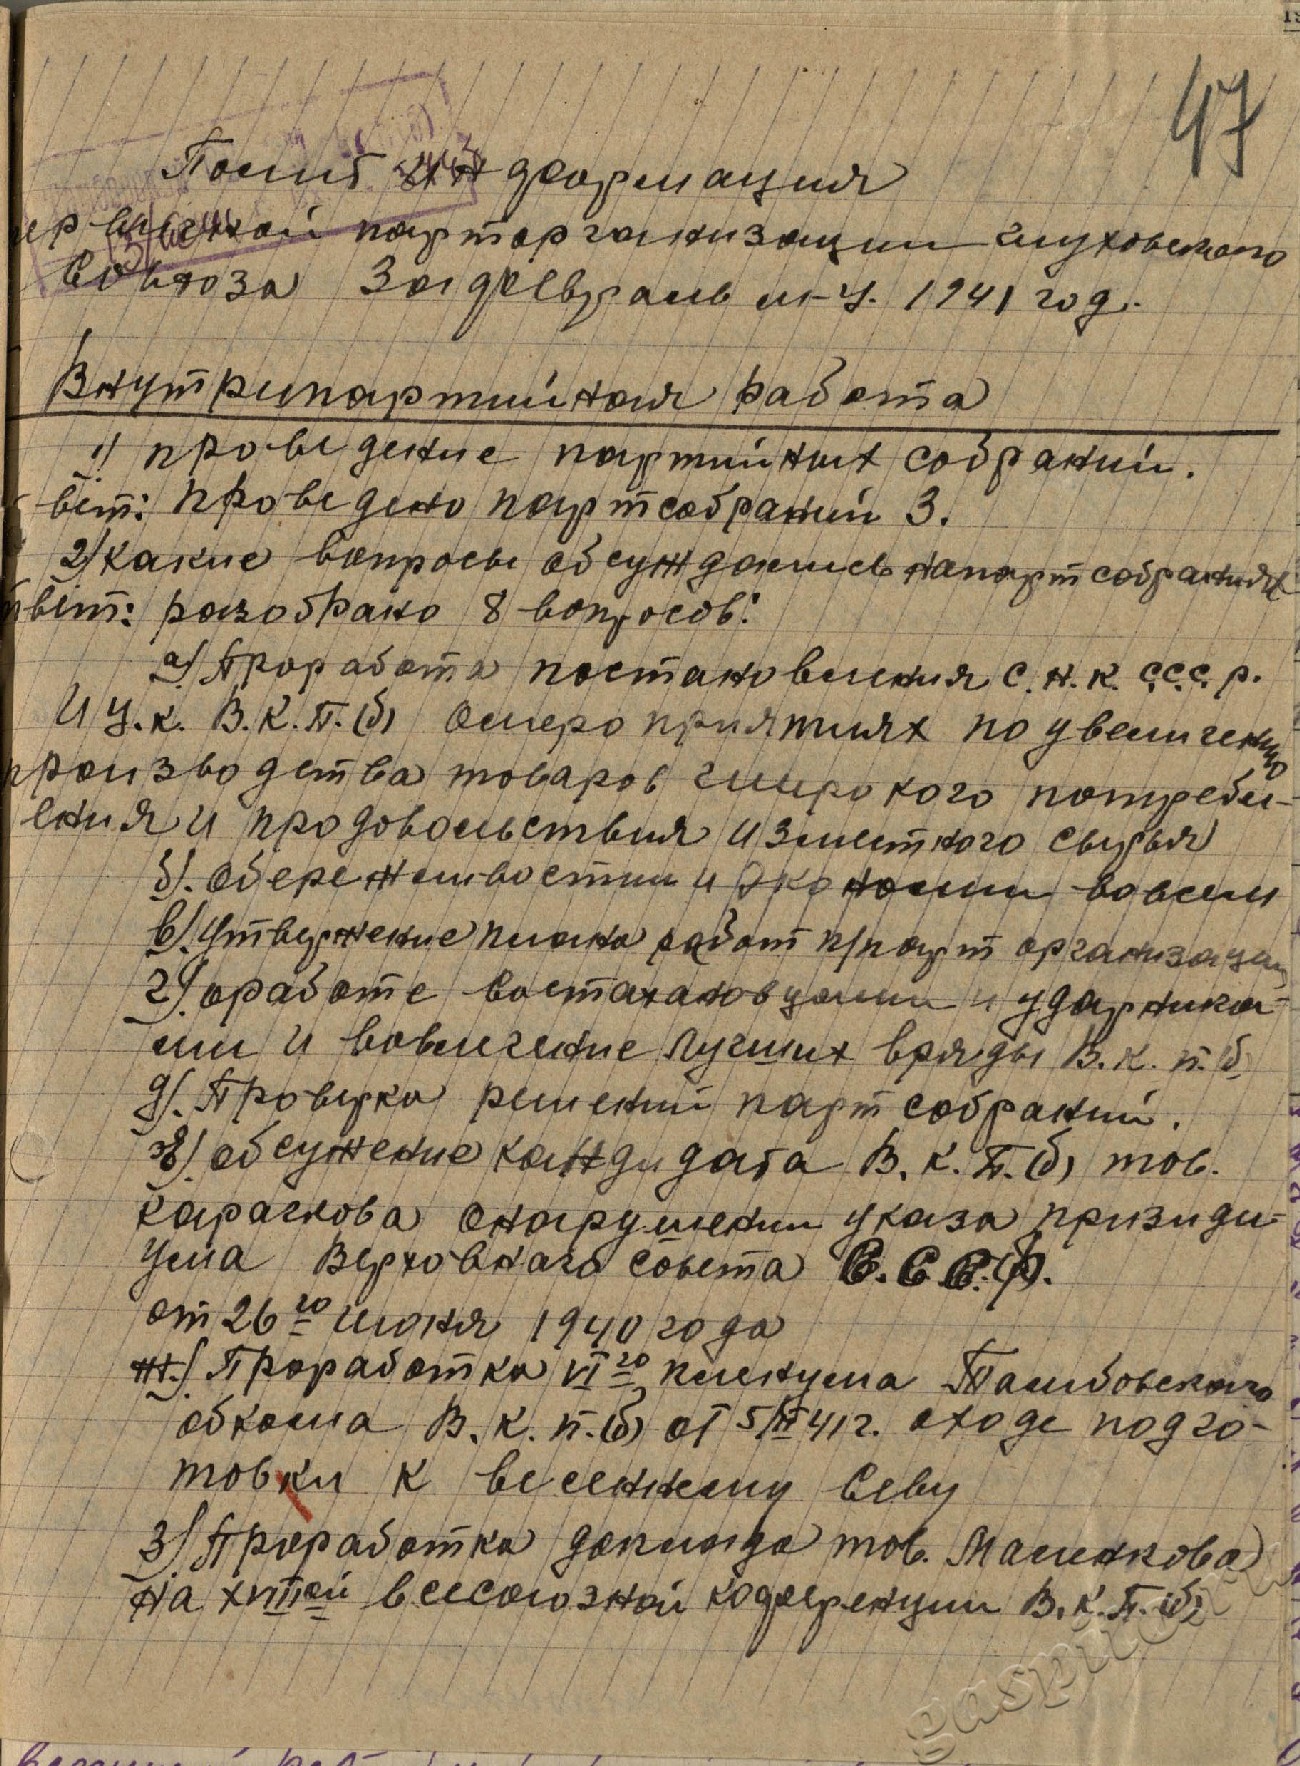 47
Полит информация
первичной парторганизации глуховского
Совхоза За февраль м-ц. 1941 год.
Внутрипартийная работа
1) проведение партийных собраний.
вет: Проведено партсобраний 3.
2) какие вопросы обсуждались на партсобраниях
твет: разобрано 8 вопросов:
а) Проработа постановления С.Н.К. С.С.С.Р.
И Ц.К. В.К.П.(б) омероприятиях по увеличению
производства товаров широкого потребл-
ения и продовольствия из местного сырья
б). обережливостии и экономии вовсем
в). Утвержение плана работ п/парт организаци
г) оработе востахановцами и ударника=
ми и вовлечение лучших вряды В.К.П.(б)
д). Проверка решений парт собраний.
е) обсужение кандидата В.К.П.(б) тов.
Карачкова онарушении указа призиди=
ума Верховнаго совета С.С.С.Р.
от 26го июня 1940 года
ж) Проработка VIго пленума Тамбовского
обкома В.К.П.(б) от 5/II 41г. оходе подго-
товки к весеннему севу
З) Проработка доклада тов. Маленкова
на XVIIIой всесоюзной кодференции В.К.П.(б)
gaspito.ru